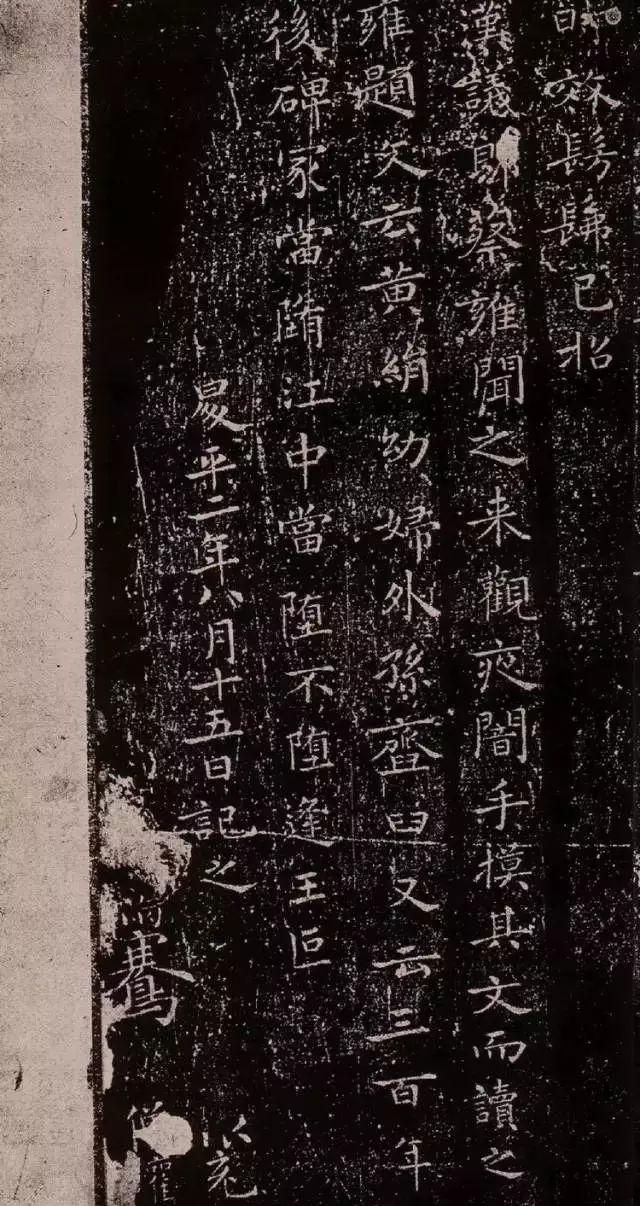 時效髣髴已招
漢議郎蔡雍聞之来觀夜闇手摸其文而讀之
雍題文云黃絹幼婦外孫齏臼又云三百年
後碑冢當墮江中當墮不墮逢王叵
昇平二年八月十五日記之
騫
以充
僧 權